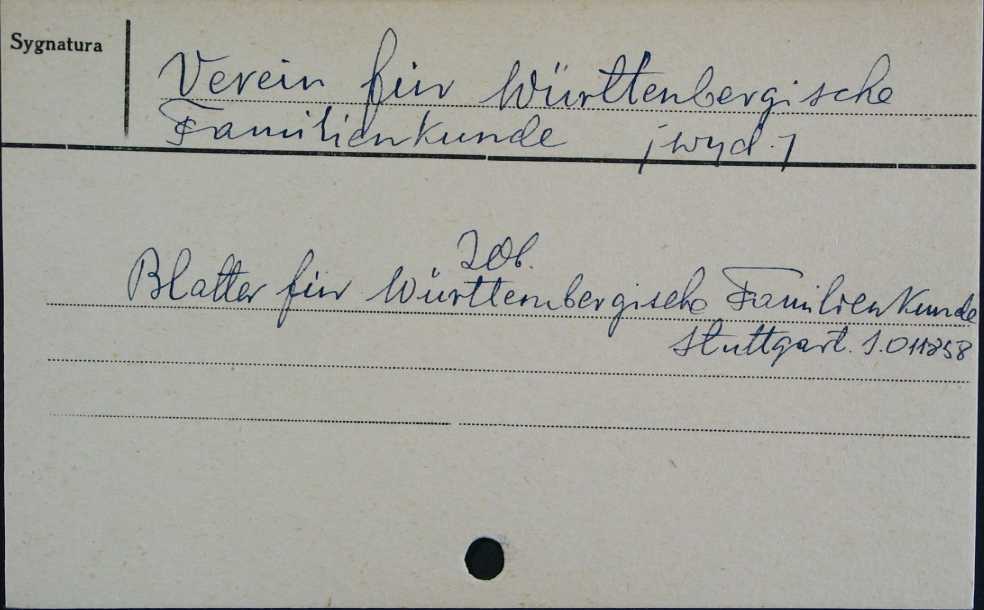 Sygnatura
Verein für Württenbergische
Familienkunde /wyd./
Zob.
Blatter für Württembergische Familienkunde
Stuttgart. S.011858